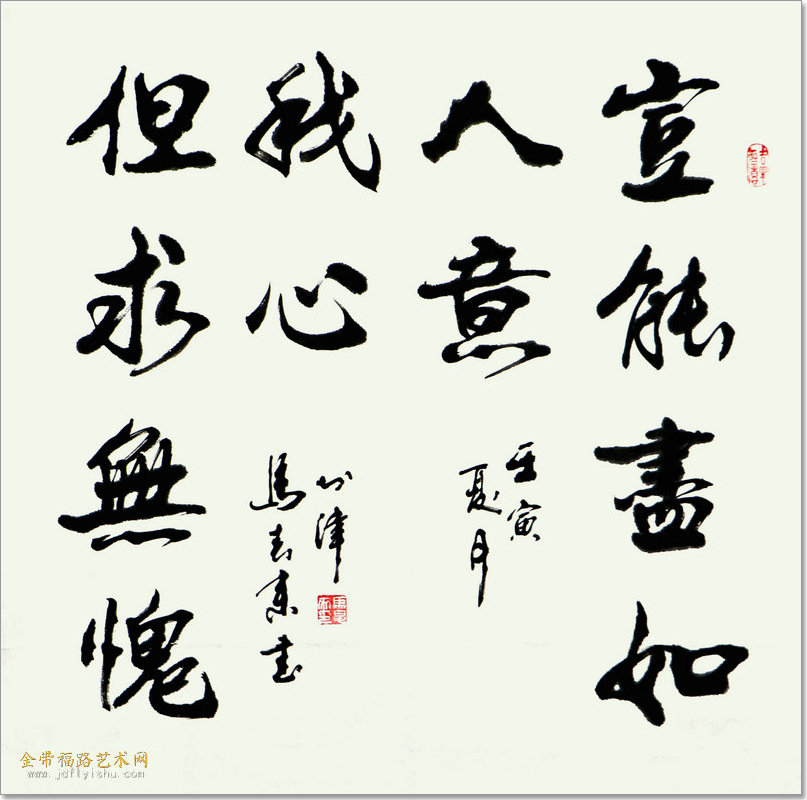 豈能盡如
人意
但求無愧
我心
壬寅
夏月
於津
馬書
金带福路艺术网
www.jdflyishu.com